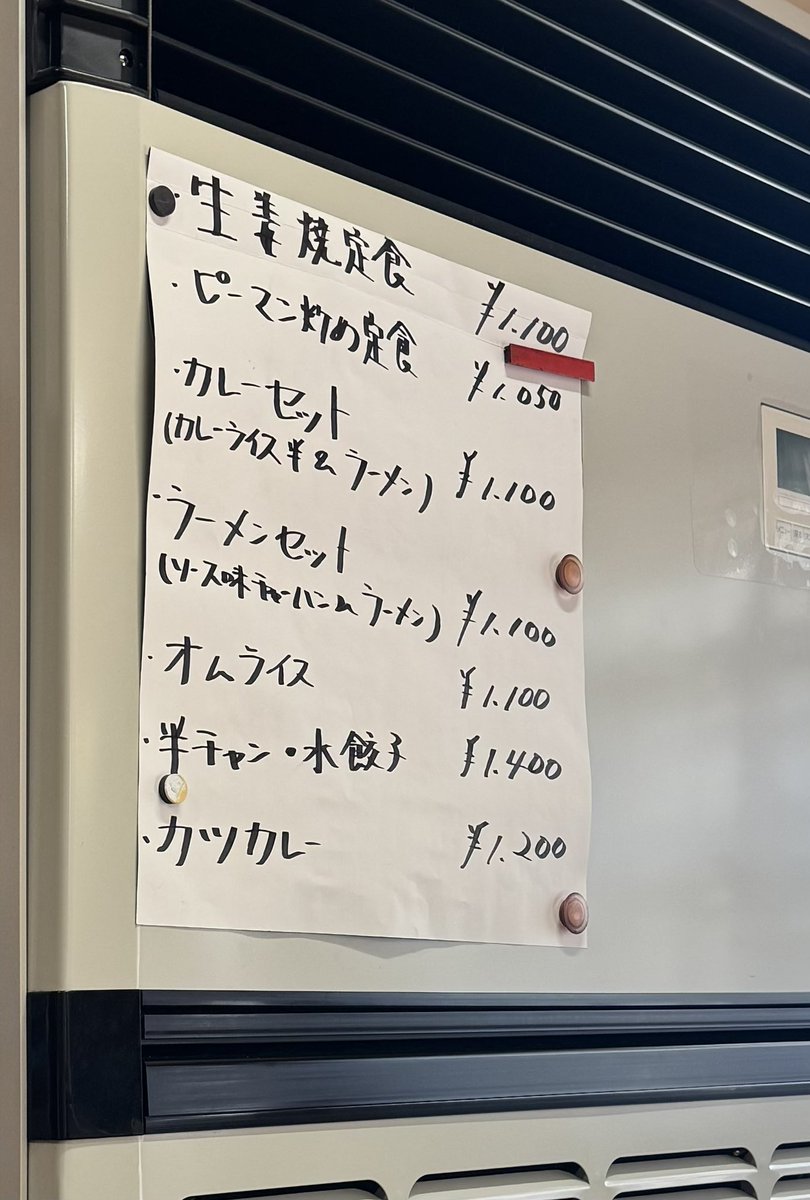 ・生姜焼定食 ¥1.100
・ピーマン炒め定食 ¥1.050
・カレーセット
(カレーライス半&ラーメン) ¥1.100
・ラーメンセット
(ソース味チャーハン&ラーメン) ¥1.100
・オムライス ¥1.100
・半チャン・水餃子 ¥1.400
・カツカレー ¥1.200